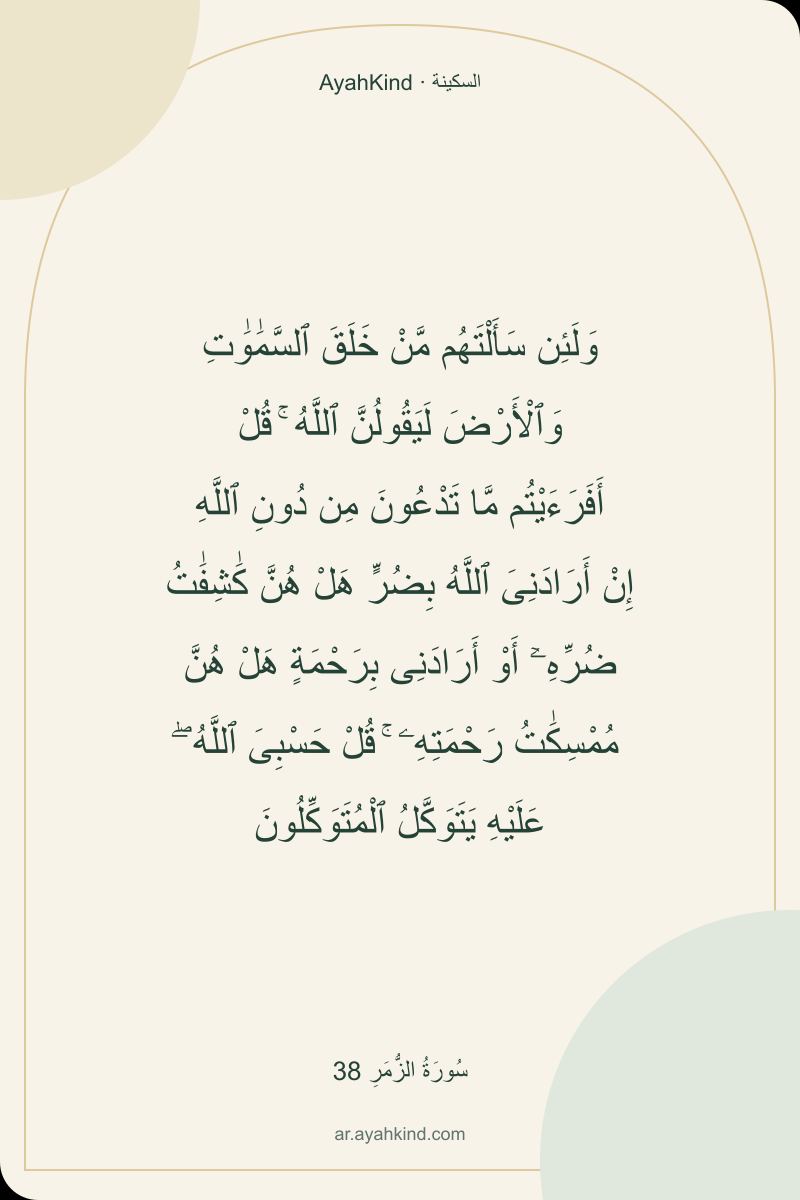 AyahKind · السكينة
وَلَئِن سَأَلْتَهُم مَّنْ خَلَقَ ٱلسَّمَٰوَٰتِ
وَٱلْأَرْضَ لَيَقُولُنَّ ٱللَّهُ ۚ قُلْ
أَفَرَءَيْتُم مَّا تَدْعُونَ مِن دُونِ ٱللَّهِ
إِنْ أَرَادَنِىَ ٱللَّهُ بِضُرٍّ هَلْ هُنَّ كَٰشِفَٰتُ
ضُرِّهِۦٓ أَوْ أَرَادَنِى بِرَحْمَةٍ هَلْ هُنَّ
مُمْسِكَٰتُ رَحْمَتِهِۦ ۚ قُلْ حَسْبِىَ ٱللَّهُ ۖ
عَلَيْهِ يَتَوَكَّلُ ٱلْمُتَوَكِّلُونَ
سُورَةُ الزُّمَرِ 38
ar.ayahkind.com